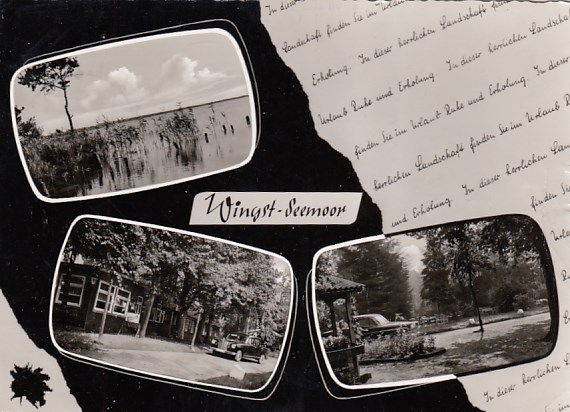 In dieser herrlichen Landschaft
Landschaft finden Sie im Urlaub
Erholung. In dieser herrlichen Landschaft
Urlaub Ruhe und Erholung. In dieser herrlichen
finden Sie im Urlaub Ruhe und Erholung. In dieser
herrlichen Landschaft finden Sie im Urlaub
und Erholung. In dieser herrlichen
finden Sie
Urlaub
Ruhe
Wingst-Seemoor
In dieser
herrlichen
In dieser